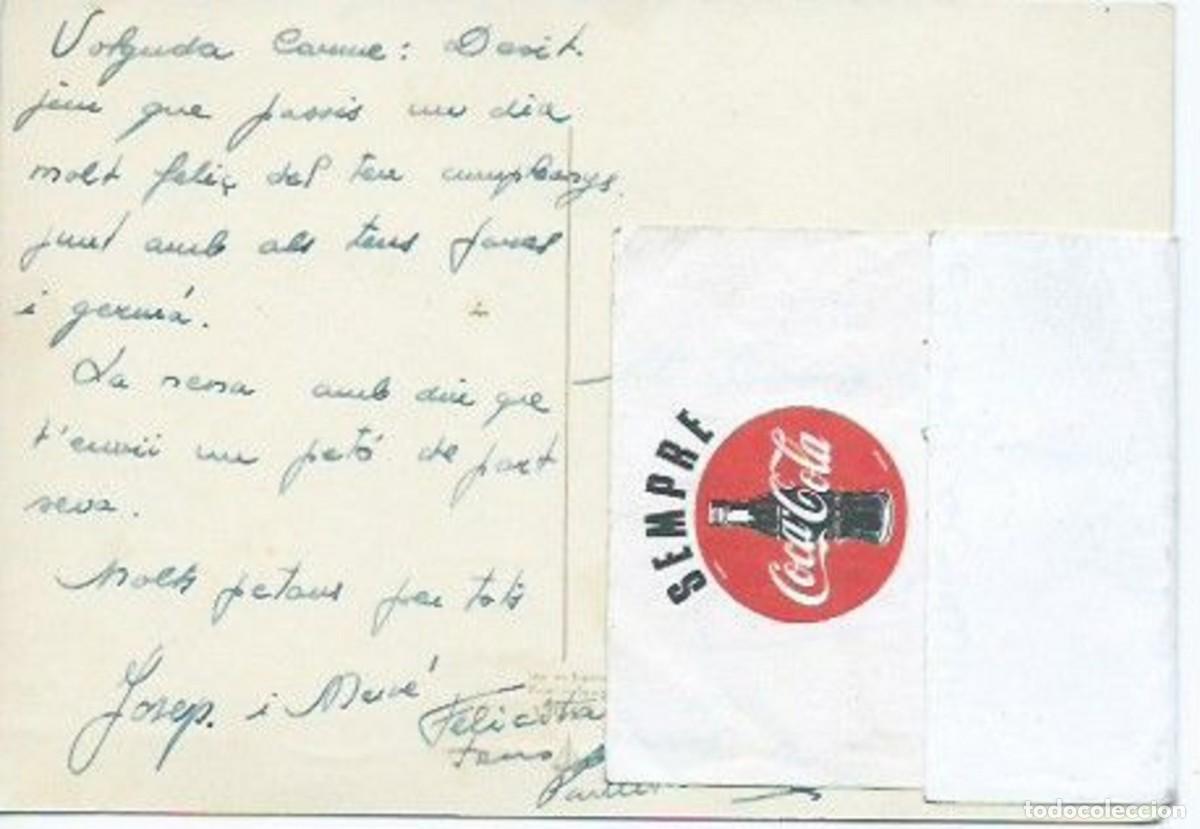 Volguda Carme: Desit-
jem que passis un dia
molt feliç del teu cumpleanys
junt amb als teus pares
i germá.
La nena amb diu que
t'envii un petó de part
seva.
Molts petons per tots
Josep. i Mercé
Felicita
SEMPRE
Coca-Cola
todocoleccion